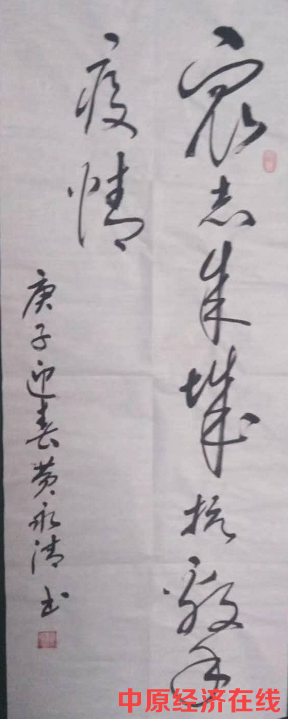 眾志成城抗擊
疫情
庚子迎春黄永清书
中原经济在线